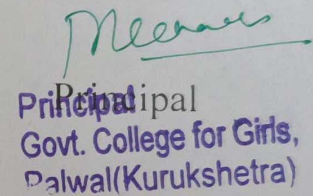 Principal
Principal
Govt. College for Girls,
Palwal(Kurukshetra)